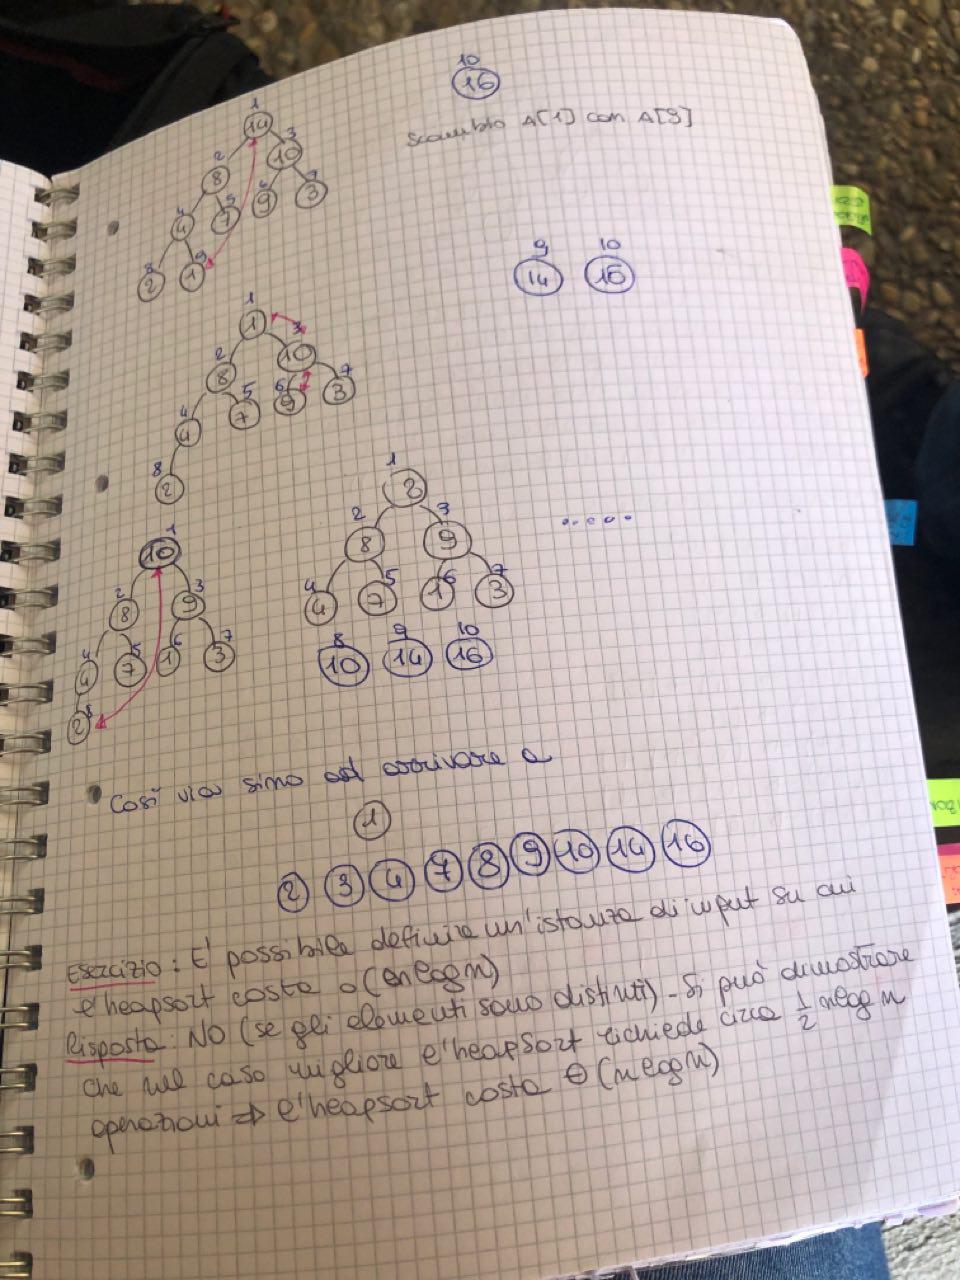 10
16
Scambio A[1] con A[9]
1
14
2 3
8 10
4 5 6 7
4 7 9 3
8 9
2 1
9 10
14 16
1
1
2 3
8 10
4 5 6 7
4 7 9 3
8
2
1
2
2 3
8 9
4 5 6 7
4 7 1 3
8 9 10
10 14 16
.....
1
10
2 3
8 9
4 5 6 7
4 7 1 3
8
2
Così via sino ad arrivare a
1
2 3 4 7 8 9 10 14 16
Esercizio: E' possibile definire un'istanza di input su cui
l'heapsort costa o(nlogn)
Risposta: NO (se gli elementi sono distinti) - Si può dimostrare
che nel caso migliore l'heapsort richiede circa 1/2 nlogn
operazioni => l'heapsort costa Θ(nlogn)